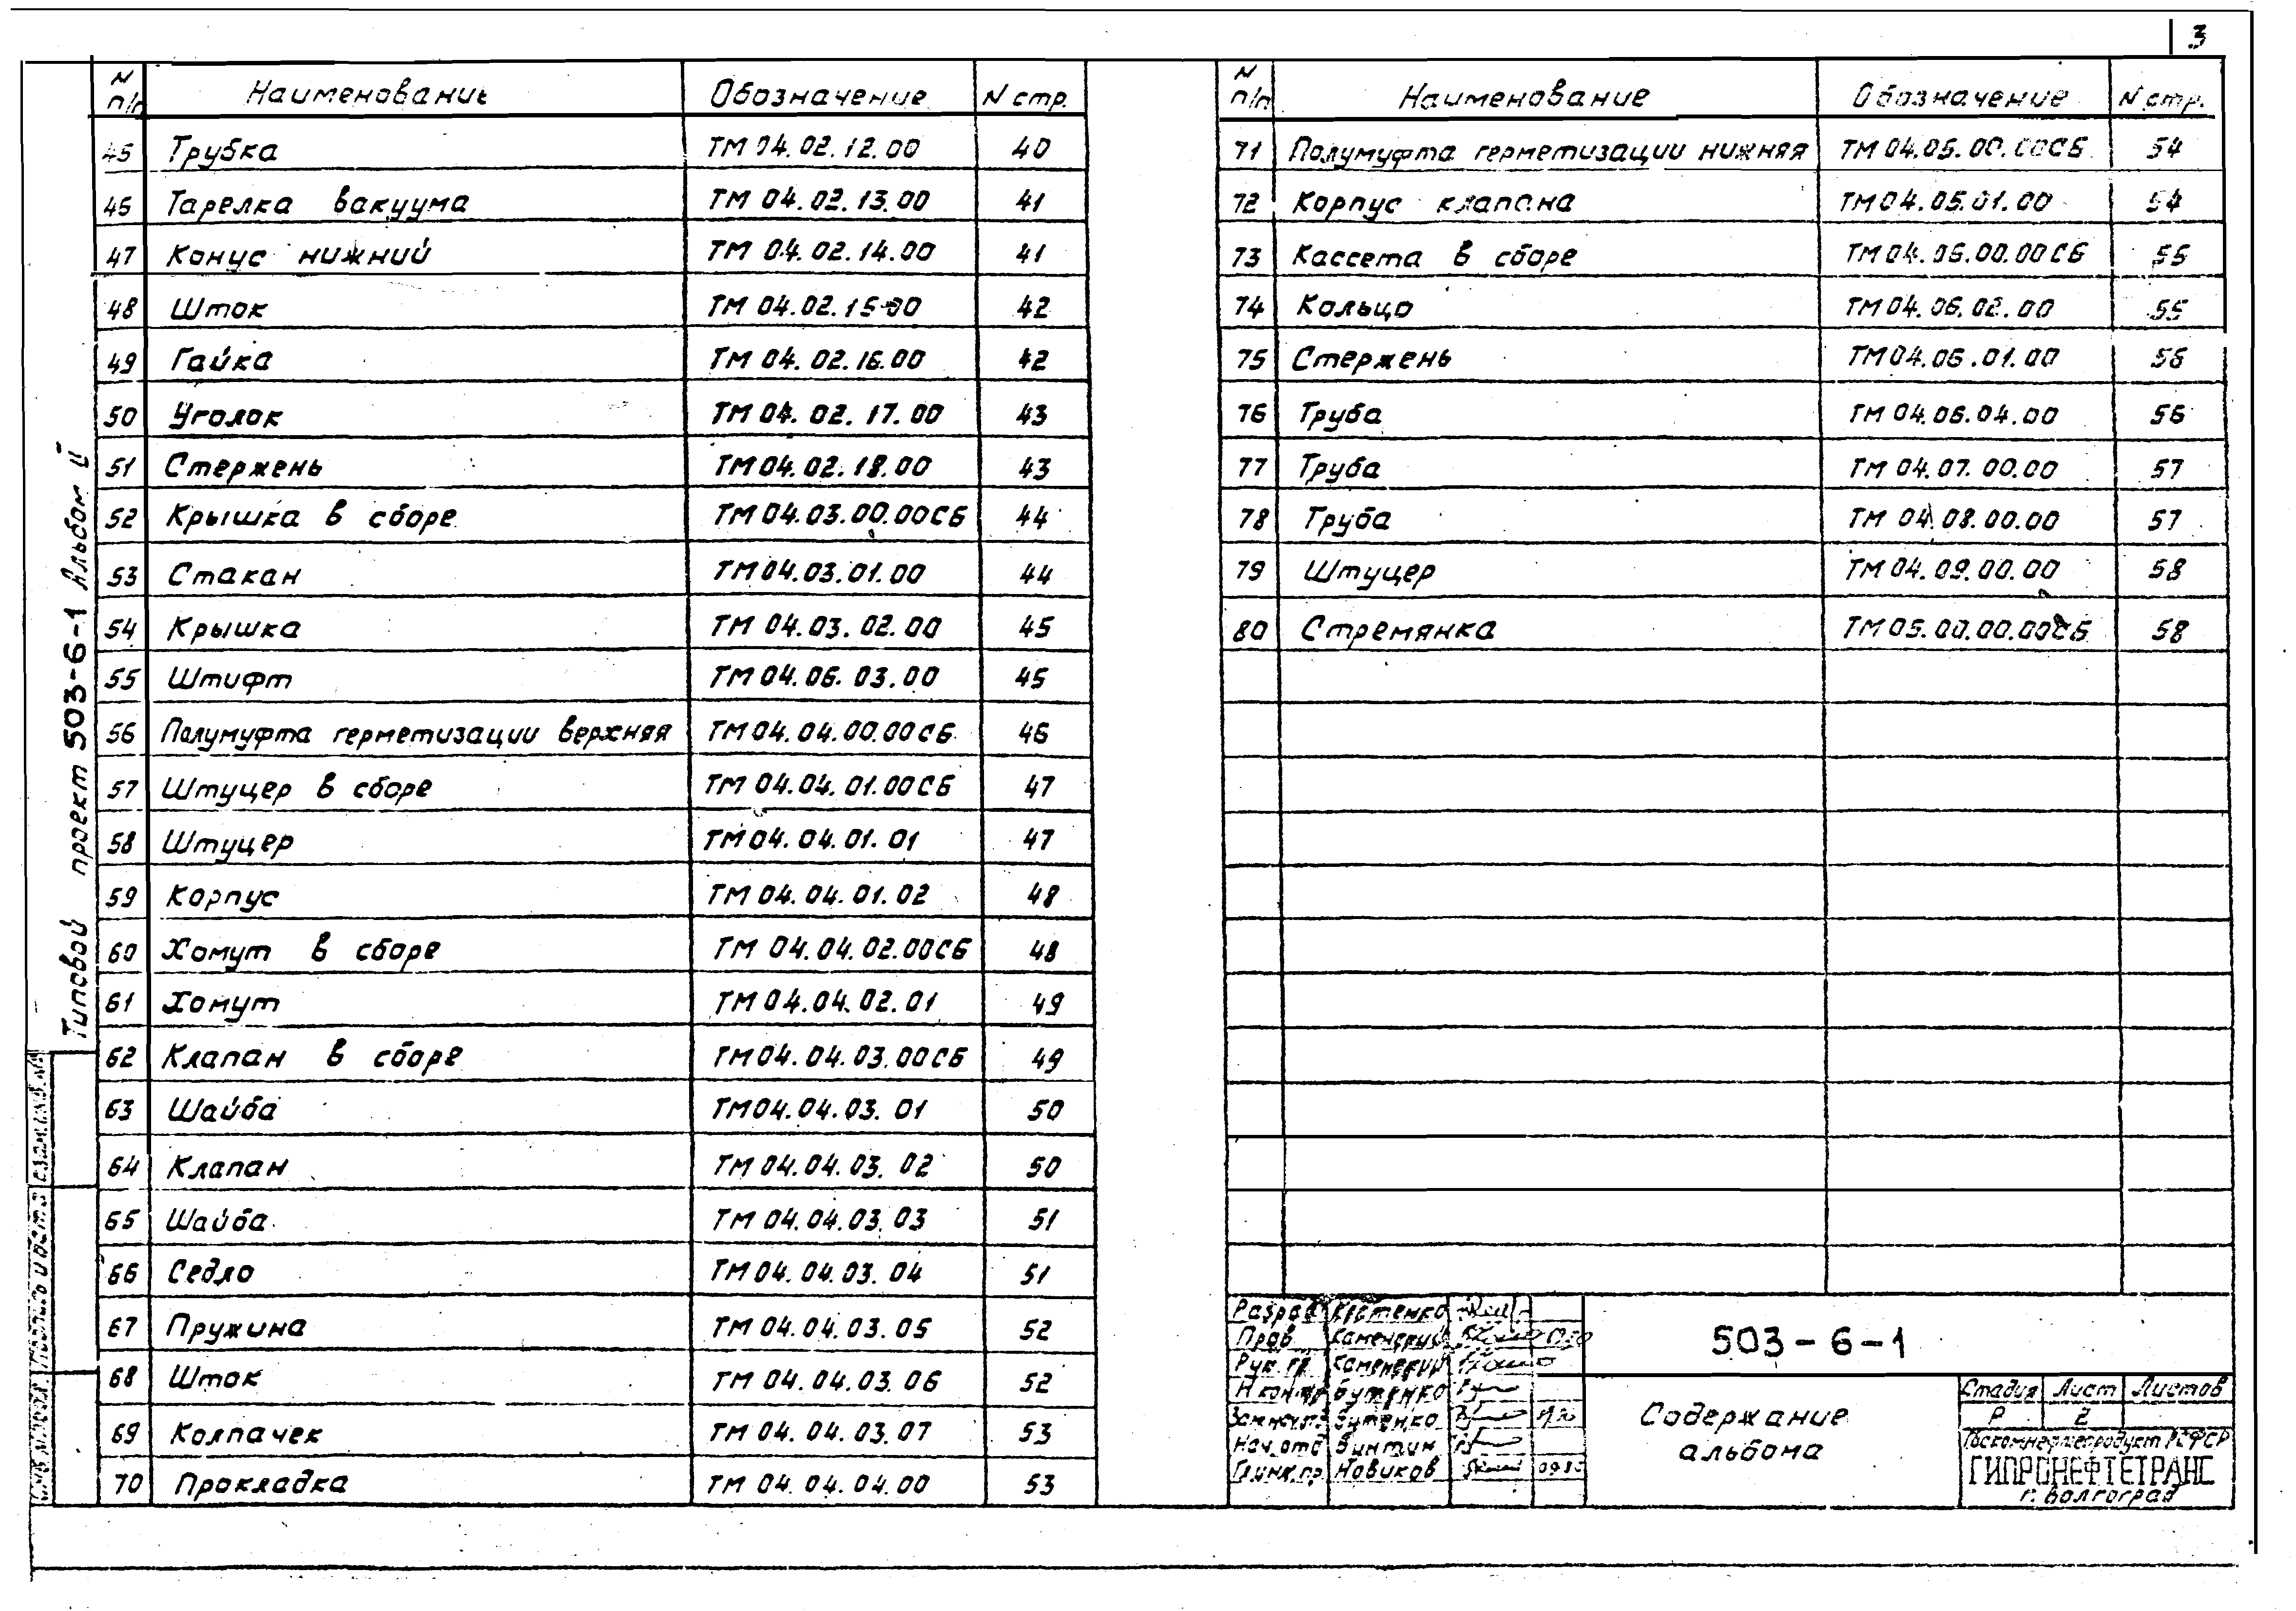 3
N п/п Наименование Обозначение N стр.
45 Трубка ТМ 04.02.12.00 40
46 Тарелка вакуума ТМ 04.02.13.00 41
47 Конус нижний ТМ 04.02.14.00 41
48 Шток ТМ 04.02.15.00 42
49 Гайка ТМ 04.02.16.00 42
50 Уголок ТМ 04.02.17.00 43
51 Стержень ТМ 04.02.18.00 43
52 Крышка в сборе ТМ 04.03.00.00СБ 44
53 Стакан ТМ 04.03.01.00 44
54 Крышка ТМ 04.03.02.00 45
55 Штифт ТМ 04.06.03.00 45
56 Полумуфта герметизации верхняя ТМ 04.04.00.00СБ 46
57 Штуцер в сборе ТМ 04.04.01.00СБ 47
58 Штуцер ТМ 04.04.01.01 47
59 Корпус ТМ 04.04.01.02 48
60 Хомут в сборе ТМ 04.04.02.00СБ 48
61 Хомут ТМ 04.04.02.01 49
62 Клапан в сборе ТМ 04.04.03.00СБ 49
63 Шайба ТМ 04.04.03.01 50
64 Клапан ТМ 04.04.03.02 50
65 Шайба ТМ 04.04.03.03 51
66 Седло ТМ 04.04.03.04 51
67 Пружина ТМ 04.04.03.05 52
68 Шток ТМ 04.04.03.06 52
69 Колпачек ТМ 04.04.03.07 53
70 Прокладка ТМ 04.04.04.00 53
N п/п Наименование Обозначение N стр.
71 Полумуфта герметизации нижняя ТМ 04.05.00.00СБ 54
72 Корпус клапана ТМ 04.05.01.00 54
73 Кассета в сборе ТМ 04.06.00.00СБ 55
74 Кольцо ТМ 04.06.02.00 55
75 Стержень ТМ 04.06.01.00 56
76 Труба ТМ 04.06.04.00 56
77 Труба ТМ 04.07.00.00 57
78 Труба ТМ 04.08.00.00 57
79 Штуцер ТМ 04.09.00.00 58
80 Стремянка ТМ 05.00.00.00СБ 58
Типовой проект 503-6-1 Альбом II
Разраб
Пров. Каменский
Рук. гр. Каменский
Н контр Бутенко
Бутенко
Нач. отд Винтин
Новиков
503-6-1
Содержание
альбома
Стадия Лист Листов
Р 2
Госкомнефтепродукт РСФСР
ГИПРОНЕФТЕТРАНС
г. Волгоград